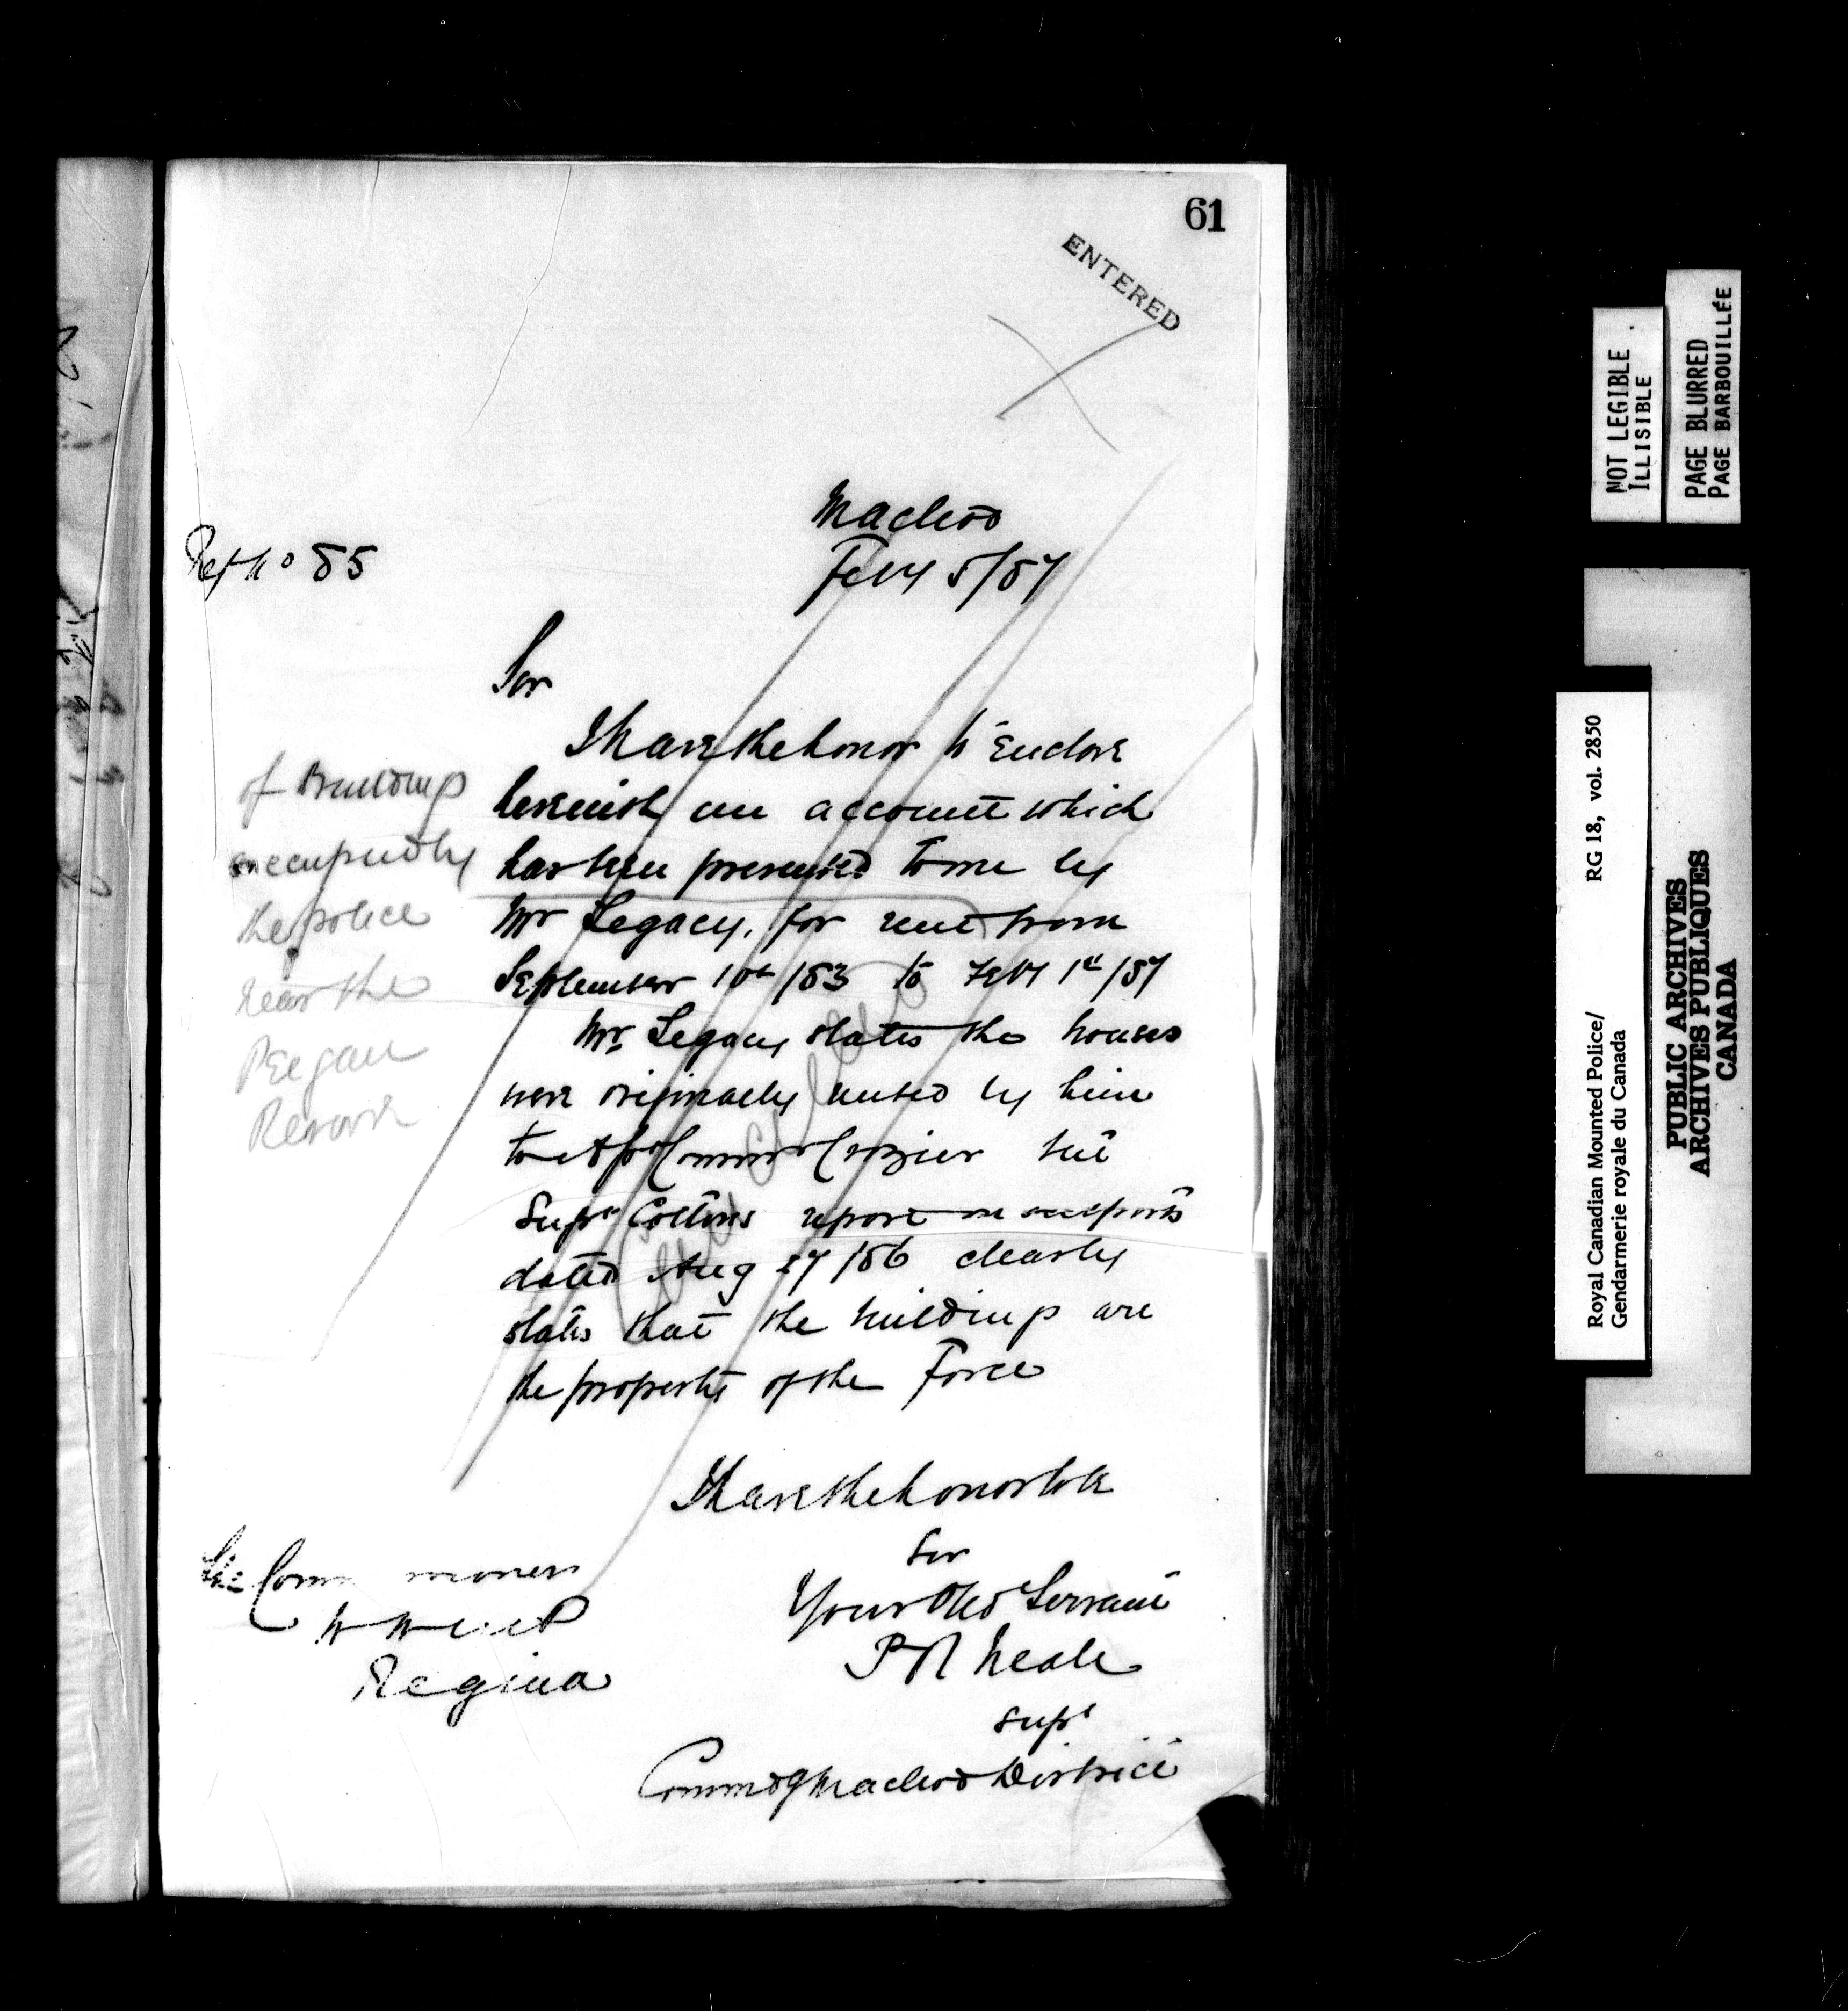 61
ENTERED
Macleod
Feby 5/87
Ref No 85
Sir
I have the honor to enclose
herewith an account which
has been presented to me by
Mr Legacy, for rent from
September 10th/83 to Feby 1st/87
Mr. Legacy states the houses
were originally rented by him
to Asst Commr Crozier but
Supt Cottons report on outposts
dated Aug 27/86 clearly
states that the buildings are
the property of the Force
of Buildings
occupied by
the police
near the
Peigan
Reserve
I have the honor to be
Sir
Your Obed Servant
P R Neale
Supt
Commdg Macleod District
The Commissioner
N W M P
Regina
NOT LEGIBLE
ILLISIBLE
PAGE BLURRED
PAGE BARBOUILLÉE
Royal Canadian Mounted Police/
Gendarmerie royale du Canada
RG 18, vol. 2850
PUBLIC ARCHIVES
ARCHIVES PUBLIQUES
CANADA